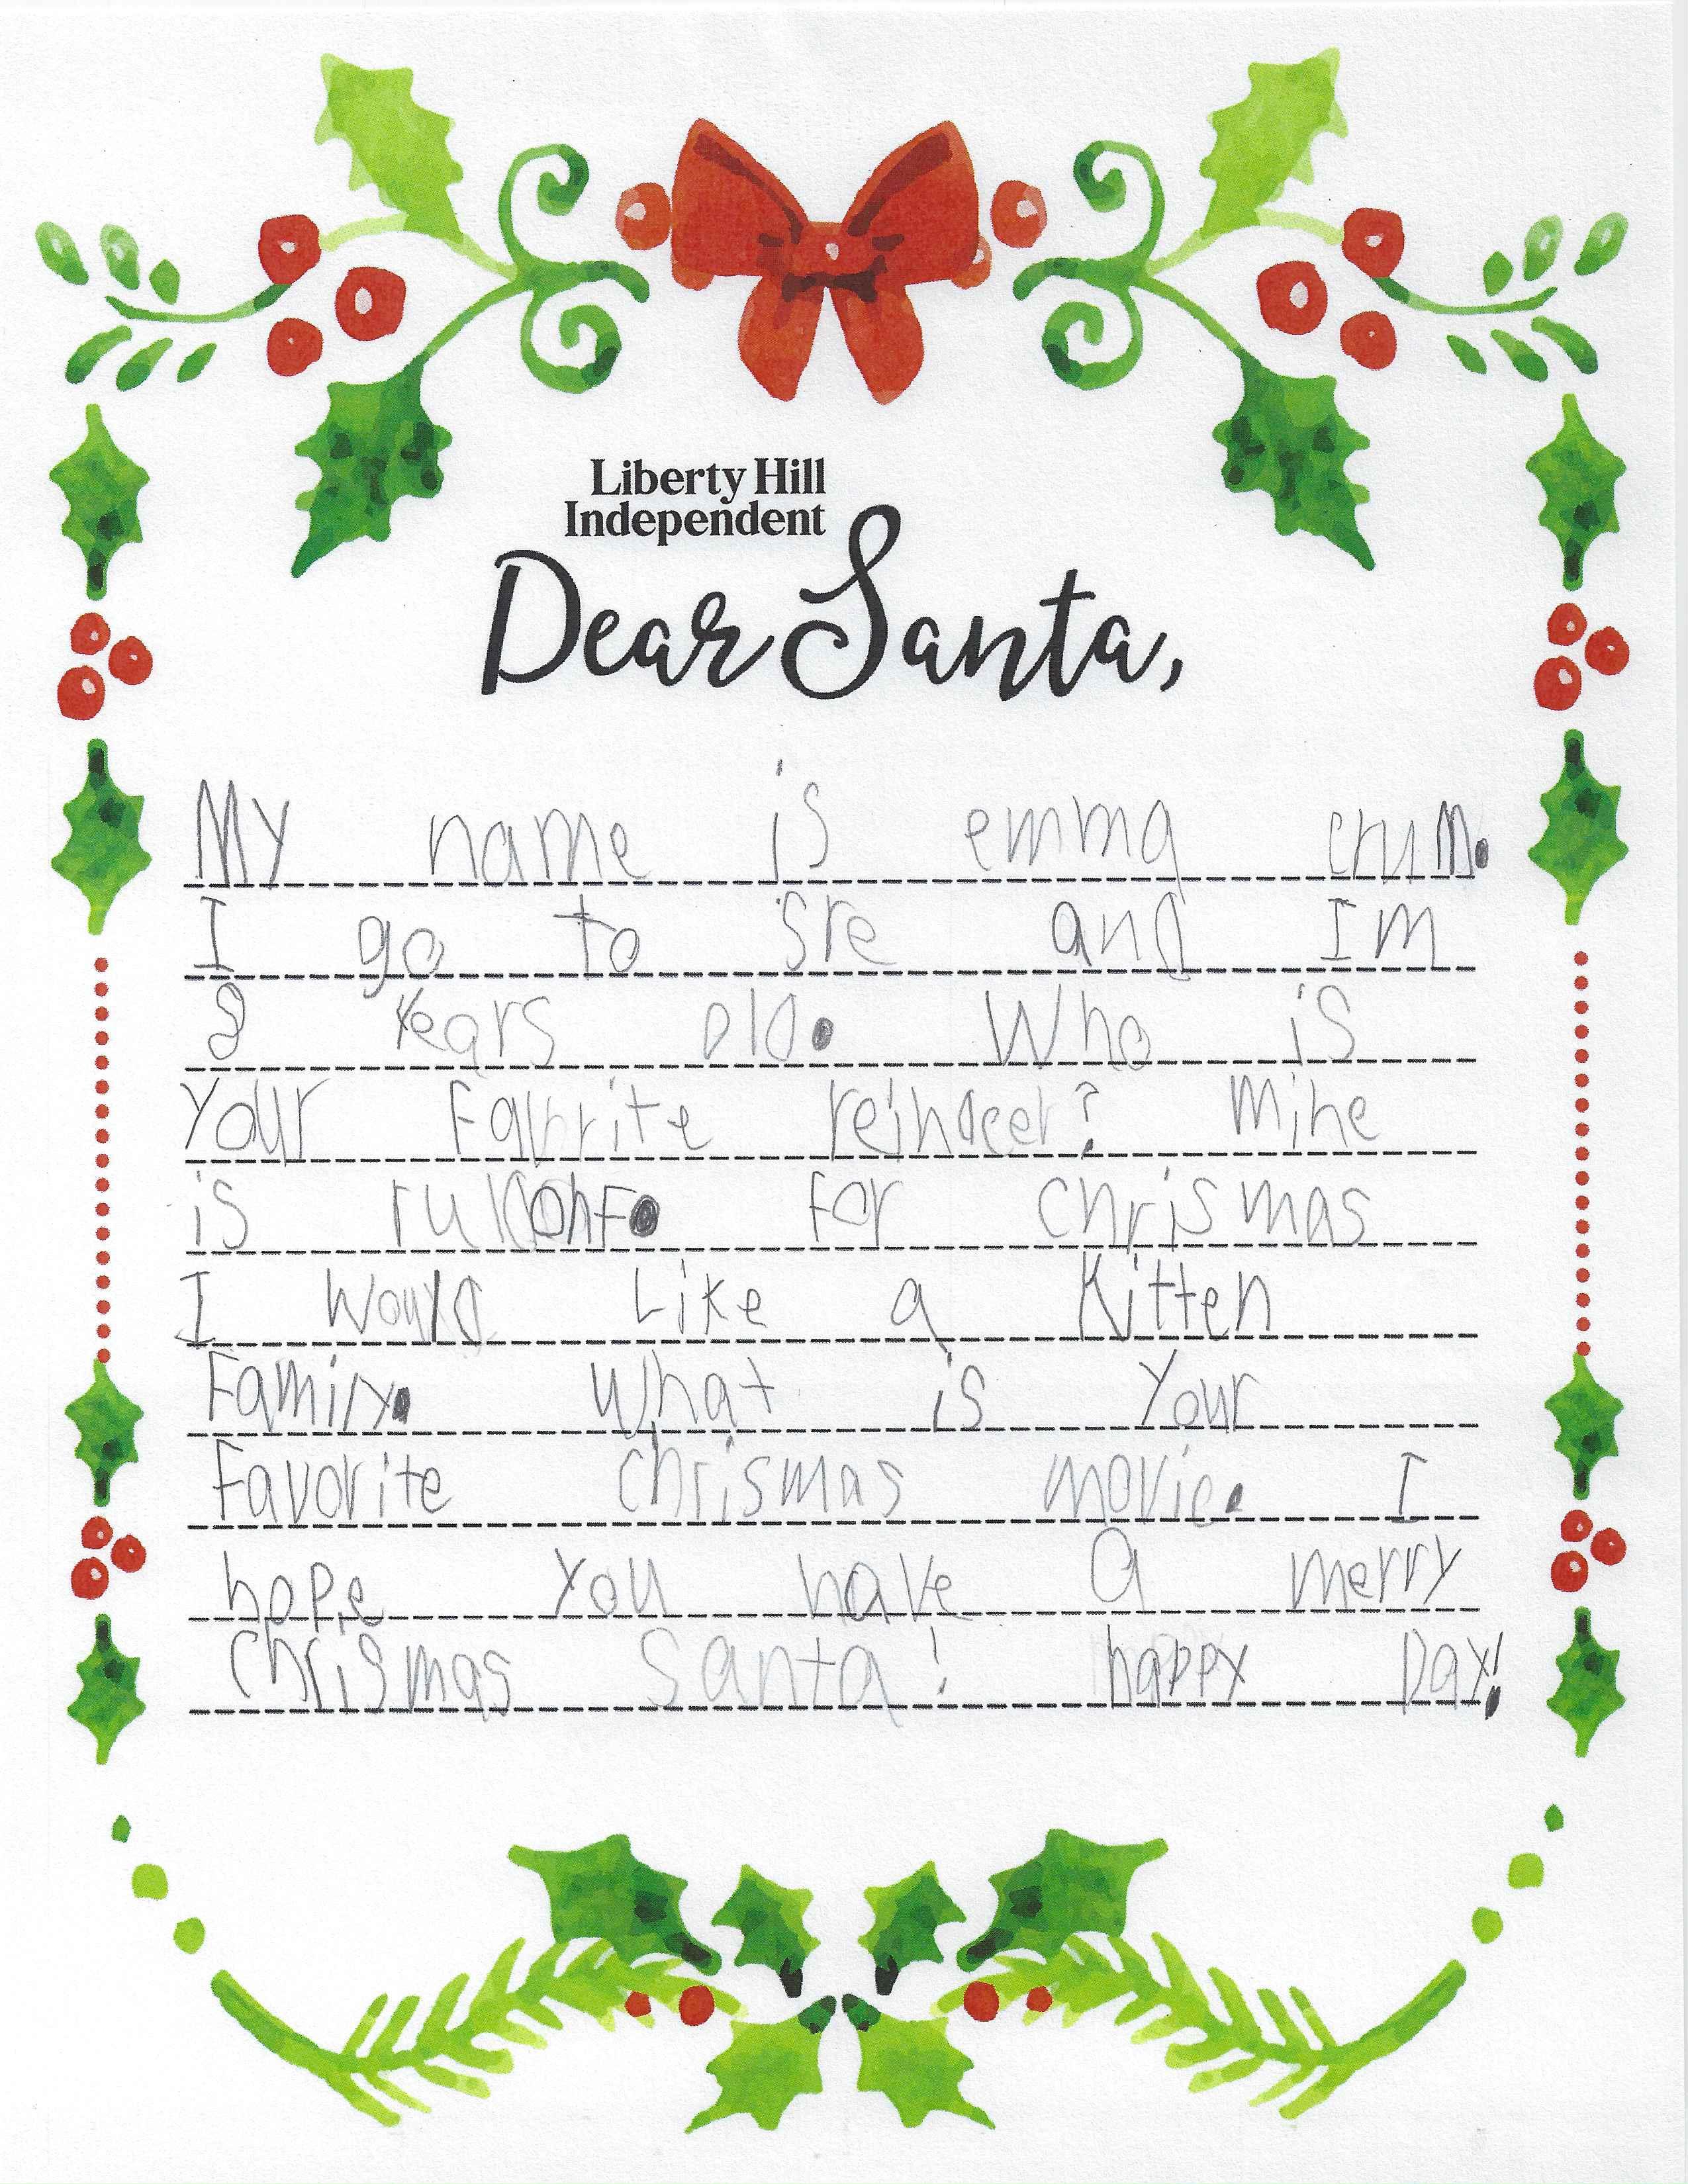 Liberty Hill
Independent
Dear Santa,
My name is emma crum.
I go to sre and Im
8 Years old. Who is
Your Favorite reindeer? Mine
is . For chrismas
I would Like a Kitten
Family. What is Your
Favorite chrismas movie. I
hope You have a merry
Chrismas Santa! happy Day!